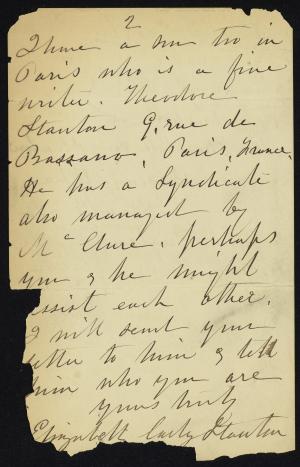 2
I have a son too in
Paris who is a fine
writer. Theodore
Stanton 9, rue de
Bassano, Paris, France.
He has a Syndicate
also managed by
Mc Clure. perhaps
you & he might
assist each other.
I will send your
letter to him & tell
him who you are
yours truly
Elizabeth Cady Stanton